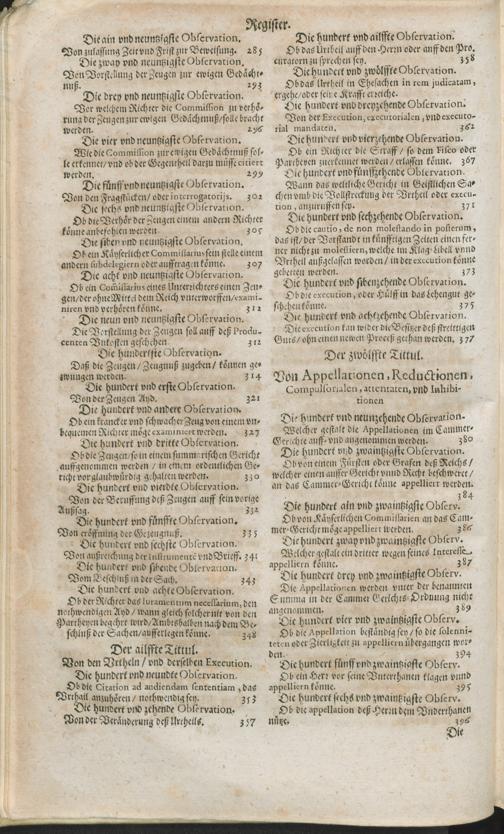 Register.
Die ain vnd neuntzigste Observation.
Von zulassung Zeit vnd Frist zur Beweisung. 285
Die zway vnd neuntzigiste Observation.
Von Vorstellung der Zeugen zur ewigen Gedächt-
nuß. 293
Die drey vnd neuntzigiste Observation.
Vor welchem Richter die Commission zu verhö-
rung der Zeugen zur ewigen Gedächtnuß/solle bracht
werden. 296
Die vier vnd neuntzigiste Observation.
Wie die Commission zur ewigen Gedächtnuß sol-
le erkennet/ vnd ob der Gegentheil darzu müsse citiert
werden. 299
Die fünff vnd neuntzigiste Observation.
Von den Fragstücken/ oder interrogatorijs. 302
Die sechs vnd neuntzigiste Observation.
Ob die Verhör der Zeugen einem andern Richter
könne anbefohlen werden. 305
Die siben vnd neuntzigiste Observation.
Ob ein Käyserlicher Commissarius sein stelle einem
andern subdelegiern oder aufftragen könne. 307
Die acht vnd neuntzigiste Observation.
Ob ein Comissarius eines Unterrichters einen Zeu-
gen/ der ohne Mittel dem Reich vnterworffen/exami-
niren vnd verhören könne. 312
Die neun vnd neuntzigiste Observation.
Die Vorstellung der Zeugen soll auff deß Produ-
centen Vnkosten geschehen. 312
Die hundertste Observation.
Daß die Zeugen/ Zeugnuß zugeben/ können ge-
zwungen werden. 314
Die hundert vnd erste Observation.
Von der Zeugen Ayd. 321
Die hundert vnd andere Observation.
Ob ein krancker vnd schwacher Zeug von einem vn-
bequemen Richter möge examiniert werden. 327
Die hundert vnd dritte Observation.
Ob die Zeugen/ so in einem summarischen Gericht
auffgenommen werden/ in einem ordentlichen Ge-
richt vor glaubwürdig gehalten werden. 330
Die hundert vnd vierdte Observation.
Von der Beruffung deß Zeugen auff sein vorige
Außsag. 332
Die hundert vnd fünffte Observation.
Von eröffnung der Gezeugnuß. 335
Die hundert vnd sechste Observation.
Von aufweichung der instrumente vnd Brieff. 341
Die hundert vnd sibende Observation.
Vom Beschluß in der Sach. 343
Die hundert vnd achte Observation.
Ob der Richter das Iuramentum necessarium, den
nothwendigen Ayd/ wann gleich solcher nit von den
Partheyen begehrt wird/ Ambtshalben nach dem Be-
schluß der Sachen/aufferlegen könne. 348
Der ailffte Tittul.
Von den Vrtheln/ vnd derselben Execution.
Die hundert vnd neundte Observation.
Ob die Citation ad audiendam sententiam, das
Vrtheil anzuhören/ nothwendig sey. 353
Die hundert vnd zehende Observation.
Von der Veränderung deß Urtheils. 357
Die hundert vnd ailffte Observation.
Ob das Urtheil auff den Herrn oder auff den Pro-
curatorn zu sprechen sey. 358
Die hundert vnd zwölffte Observation.
Ob das Urtheil in Ehesachen in rem judicatam,
ergehe/oder sein Krafft erreiche.
Die hundert vnd dreyzehende Observation.
Von der Execution, executorialen, vnd executo-
rial mandaten. 362
Die hundert vnd vierzehende Observation.
Ob ein Richter die Straff/ so dem Fisco oder
Partheyen zuerkennet werden/ erlassen könne. 367
Die hundert vnd fünffzehende Observation.
Wann das weltliche Gericht in Geistlichen Sa-
chen vmb die Vollstreckung der Vrtheil oder execu-
tion, anzuruffen sey. 371
Die hundert vnd sechzehende Observation.
Ob die cautio, de non molestando in posterum,
das ist/ der Vorstandt in künfftigen Zeiten einen fer-
ner nicht zu molestiern, welche im Klag-Libell vnnd
Vrtheil außgelassen worden/ in der execution könne
gebetten werden. 373
Die hundert vnd sibenzehende Observation.
Ob die execution, oder Hülff in das Lehengut ge-
schehen könne. 375
Die hundert vnd achtzehende Observation.
Die execution kan wider die Besitzer deß streittigen
Guts/ ohn einen newen Proceß gethan werden. 377
Der zwölffte Tittul.
Von Appellationen, Reductionen,
Compulsorialen, attentaten, vnd Inhibi-
tionen
Die hundert vnd neunzehende Observation.
Welcher gestalt die Appellationen im Cammer-
Gerichte auff- vnd angenommen werden. 380
Die hundert vnd zwaintzigiste Observation.
Ob von einem Fürsten oder Grafen deß Reichs/
welcher einen ausser Gericht vnnd Recht beschwerte/
an das Cammer-Gericht könne appelliert werden.
384
Die hundert ain vnd zwaintzigiste Observ.
Ob von Käyserlichen Commissarien an das Cam-
mer-Gericht möge appelliert werden. 386
Die hundert zway vnd zwaintzigiste Observ.
Welcher gestalt ein dritter wegen seines Interesse
appelliern könne. 387
Die hundert drey vnd zwaintzigiste Observ.
Die Appellationen werden vnter der benannten
Summa in der Cammer Gerichts-Ordnung nicht
angenommen. 389
Die hundert vier vnd zwaintzigiste Observ.
Ob die Appellation beständig sey/ so die solenni-
teten oder Zierligkeit zu appelliern übergangen wor-
den. 394
Die hundert fünff vnd zwaintzigiste Observ.
Ob ein Herr vor seine Vnterthanen klagen vnnd
appelliern könne. 395
Die hundert sechs vnd zwaintzigiste Observ.
Ob die appellation deß Herrn dem Vnderthanen
nütze. 396
Die